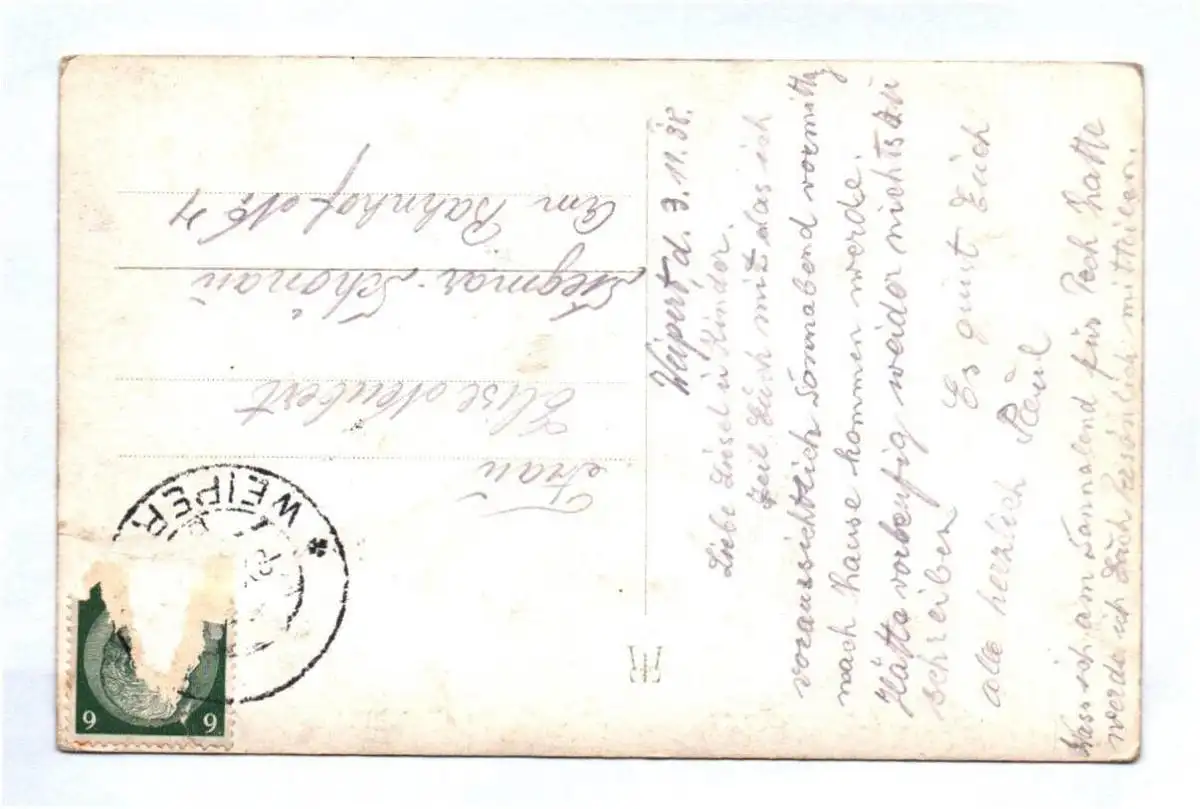 Weipert, d. 3.11.38.
Liebe Liesel u Kinder.
Teil Euch mit das ich
voraussichtlich Sonnabend vormittg
nach Hause kommen werde.
Hätte vorleufig weider nichts zu
schreiben
Es grüst Euch
alle herzlich Paul
Was ich am Sonnabend für Pech hatte
werde ich Euch persönlich mitteilen.
Frau
Elise Neubert
Siegmar-Schönau
Am Bahnhof No
WEIPER
6 6